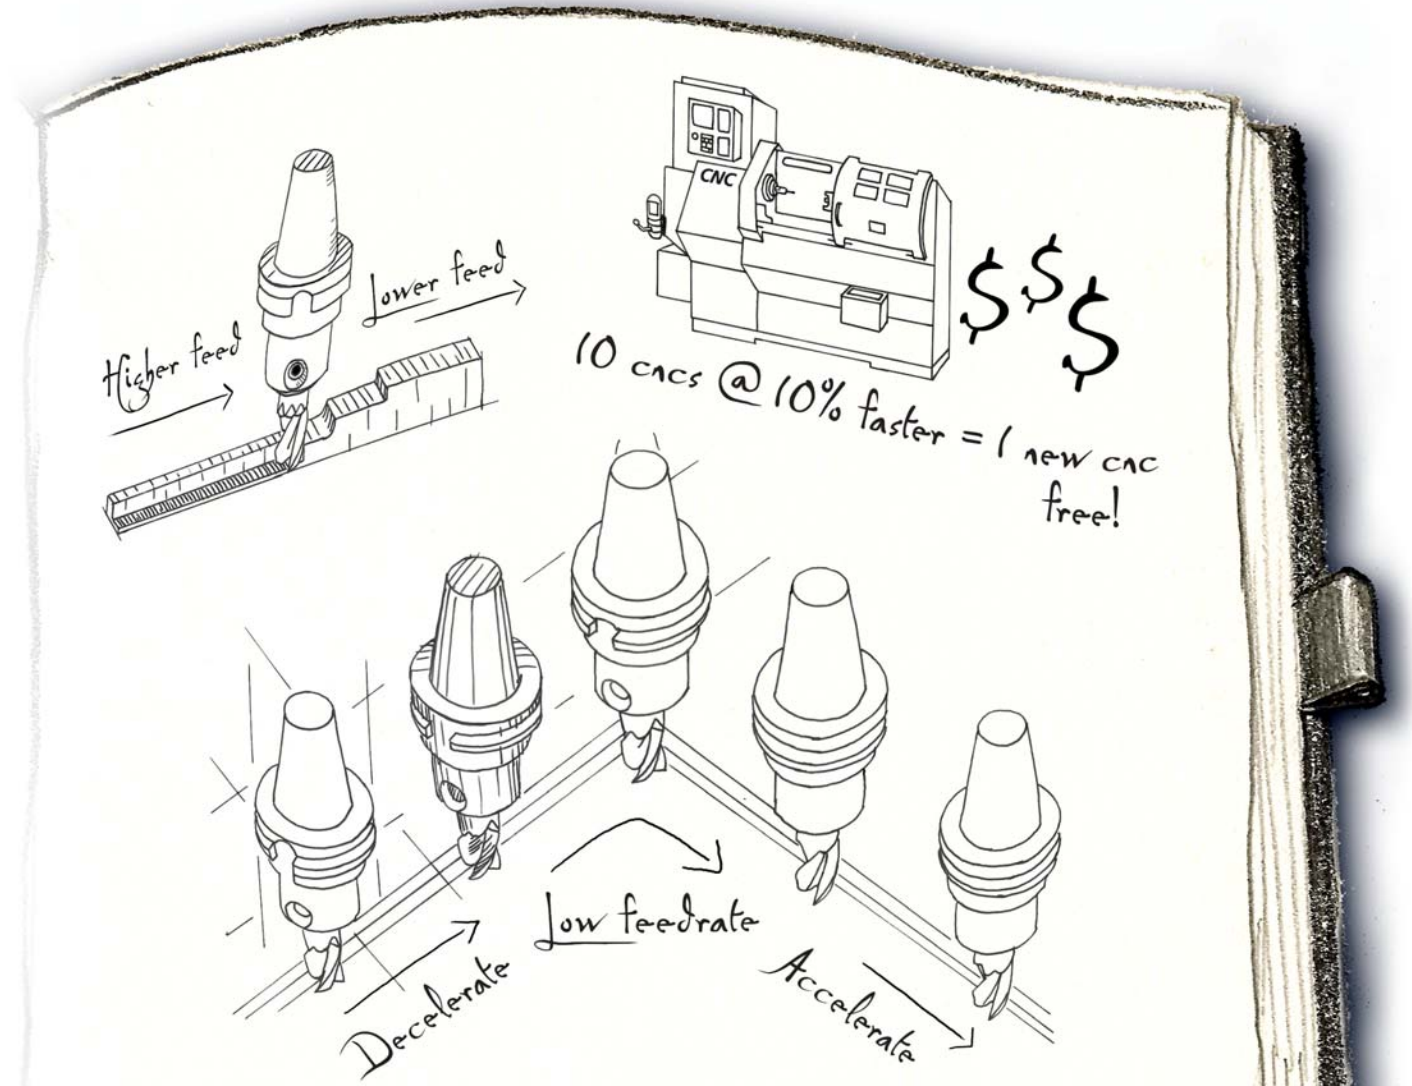 Higher feed
Lower feed
CNC
$$$
10 cncs @ 10% faster = 1 new cnc
free!
Decelerate
Low feedrate
Accelerate